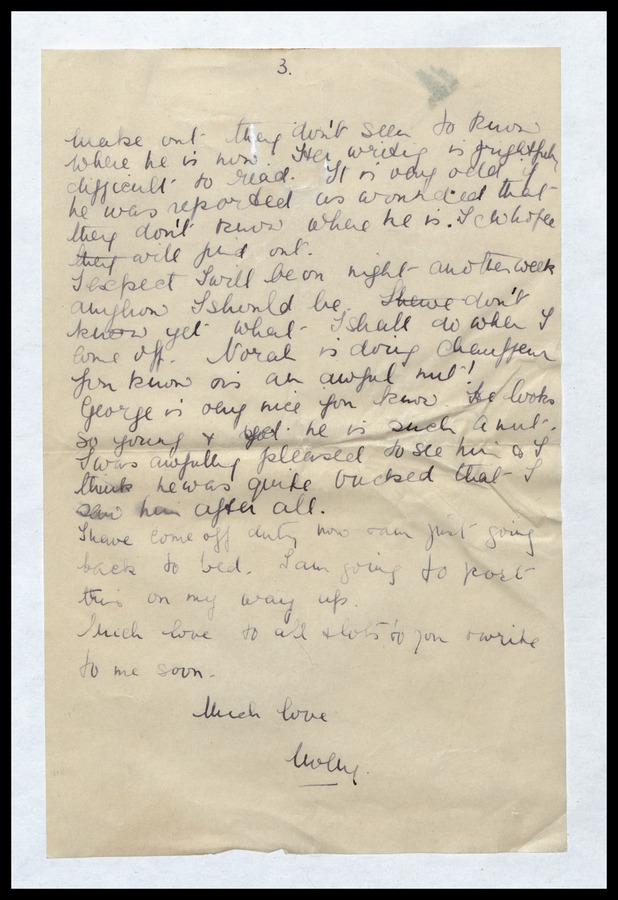 3.
make out they don't seem to know
where he is now. Her writing is frightfully
difficult to read. It is very odd if
he was reported as wounded that
they don't know where he is. I do hope
they will find out.
I expect I will be on night another week
anyhow I should be. I have don't
know yet what I shall do when I
come off. Norah is doing chauffeur
you know & is an awful nut!
George is very nice you know He looks
so young & yet he is such a nut.
I was awfully pleased to see him & I
think he was quite bucked that I
saw him after all.
I have come off duty now & am just going
back to bed. I am going to post
this on my way up.
Much love to all & lots to you & write
to me soon.
Much love
Molly.